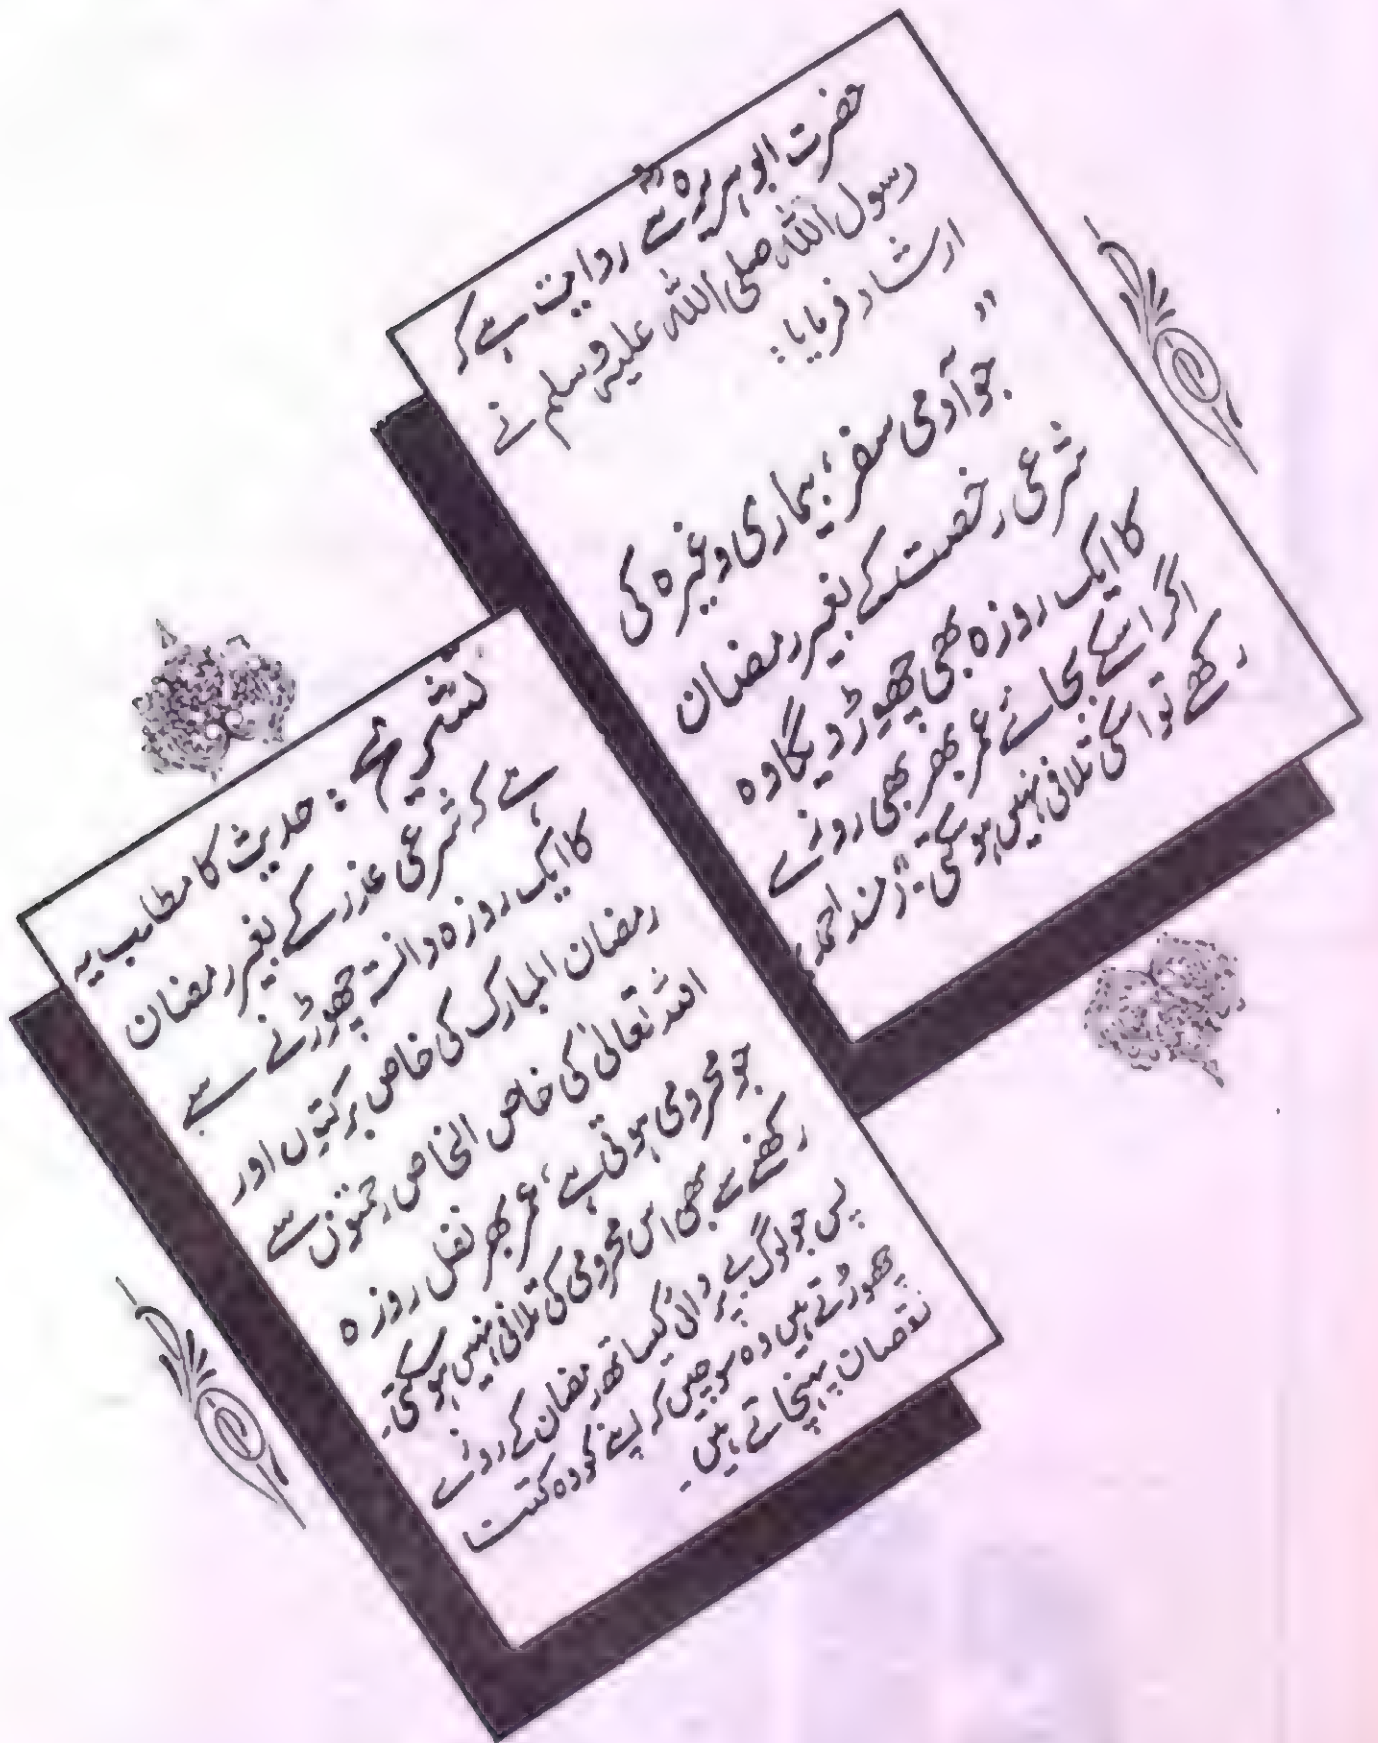 حضرت ابوہریرہؓ سے روایت ہے کہ
رسول اللہ صلی اللہ علیہ وسلم نے
ارشاد فرمایا:
"
جو آدمی سفر، بیماری وغیرہ کی
شرعی رخصت کے بغیر رمضان
کا ایک روزہ بھی چھوڑ دیگا وہ
اگر اسکے بجائے عمر بھر بھی روزے
رکھے تو اسکی تلافی نہیں ہو سکتی" (مسند احمد)
تشریح : حدیث کا مطلب یہ
ہے کہ شرعی عذر کے بغیر رمضان
کا ایک روزہ دانستہ چھوڑنے سے
رمضان المبارک کی خاص برکتوں اور
اللہ تعالیٰ کی خاص الخاص رحمتوں سے
جو محرومی ہوتی ہے، عمر بھر نفل روزہ
رکھنے سے بھی اس محرومی کی تلافی نہیں ہو سکتی۔
پس جو لوگ بے پروائی کیساتھ رمضان کے روزے
چھوڑتے ہیں وہ سوچیں کہ اپنے کو وہ کتنا
نقصان پہنچاتے ہیں۔